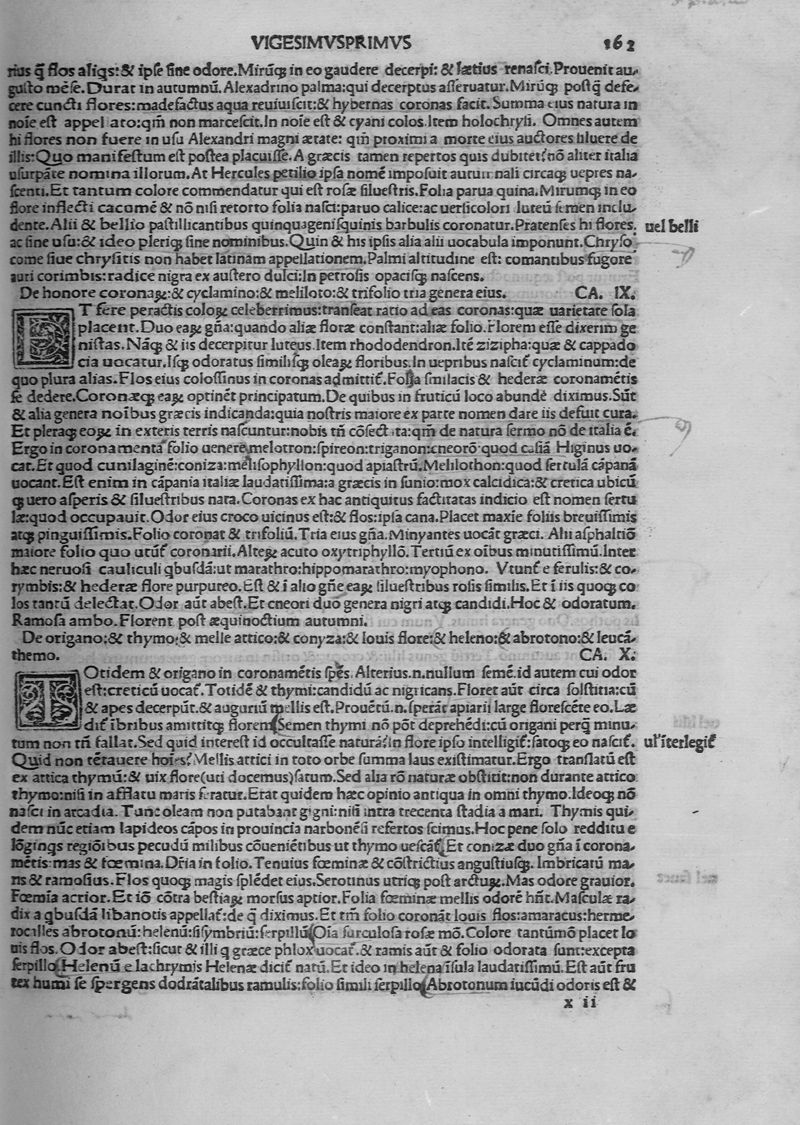 VIGESIMVSPRIMVS 162
rius q̃ flos aliq̃s:& ipſe ſine odore.Mirũq; in eo gaudere decerpi: & lætius renaſci.Prouenit au⸗
guſto mẽſe.Durat in autumnũ. Alexadrino palma:qui decerptus aſſeruatur.Mirũq; poſtq̃ defe⸗
cere cuncti flores:madefactus aqua reuiuiſcit:& hybernas coronas facit. Summa eius natura in
noĩe eſt appellato:qm̃ non marceſcit.In noĩe eſt & cyani colos.Item holochryſi. Omnes autem
hi flores non fuere in uſu Alexandri magni ætate: qm̃ proximi a morte eius auctores ſiluere de
illis:Quo manifeſtum eſt poſtea placuiſſe.A græcis tamen repertos quis dubitet?nõ aliter italia
uſurpãte nomina illorum.At Hercules petilio ipſa nomẽ impoſuit autumnali circaq; uepres na⸗
ſcenti.Et tantum colore commendatur qui eſt roſæ ſilueſtris.Folia parua quina.Mirumq; in eo
flore inflecti cacumẽ & nõ niſi retorto folia naſci:paruo calice:ac uerſicolori luteũ ſemen inclu⸗
dente.Alii & bellio paſtillicantibus quinquageniſquinis barbulis coronatur.Pratenſes hi flores. uel belli
ac ſine uſu:& ideo pleriq; ſine nominibus.Quin & his ipſis alia alii uocabula imponunt.Chryſo
come ſiue chryſitis non habet latinam appellationem.Palmi altitudine eſt: comantibus fugore
auri corimbis:radice nigra ex auſtero dulci:In petroſis opaciſq; naſcens.
De honore coronaꝝ:& cyclamino:& meliloto:& trifolio tria genera eius. CA. IX.
ET fere peractis coloꝝ celeberrimus:tranſeat ratio ad eas coronas:quæ uarietate ſola
placent.Duo eaꝝ gña:quando aliæ floræ conſtant:aliæ folio.Florem eſſe dixerim ge
niſtas.Nãq; & iis decerpitur luteus.Item rhododendron.Itẽ zizipha:quæ & cappado
cia uocatur.Iſq; odoratus ſimiliſq; oleaꝝ floribus.In uepribus naſcit̃ cyclaminum:de
quo plura alias.Flos eius coloſſinus in coronas admittit̃.Folia ſmilacis & hederæ coronamẽtis
ſe dedere.Coronæq; eaꝝ optinẽt principatum.De quibus in fruticũ loco abundẽ diximus.Sũt
& alia genera noĩbus græcis indicanda:quia noſtris maiore ex parte nomen dare iis defuit cura.
Et pleraq; eoꝝ in exteris terris naſcuntur:nobis tñ cõſectata:qm̃ de natura ſermo nõ de italia ẽ.
Ergo in coronamenta folio uenere melotron:ſpireon:triganon:cneorõ quod caſiã Higinus uo⸗
cat.Et quod cunilaginẽ:coniza:meliſophyllon:quod apiaſtrũ.Melilothon:quod ſertulã cãpanã
uocant.Eſt enim in cãpania italiæ laudatiſſima:a græcis in ſunio:mox calcidica:& cretica ubicũ
q; uero aſperis & ſilueſtribus nata.Coronas ex hac antiquitus factitatas indicio eſt nomen ſertu
læ:quod occupauit.Odor eius croco uicinus eſt:& flos:ipſa cana.Placet maxĩe foliis breuiſſimis
atq; pinguiſſimis.Folio coronat & trifoliũ.Tria eius gña.Minyantes uocãt græci. Alii aſphaltiõ
maiore folio quo utũt̃ coronarii.Alteꝝ acuto oxytriphyllõ.Tertiũ ex oĩbus minutiſſimũ.Inter
hæc neruoſi cauliculi q̃buſdã:ut marathro:hippomarathro:myophono. Vtunt̃ e ferulis:& co⸗
rymbis:& hederæ flore purpureo.Eſt & ĩ alio gñe eaꝝ ſilueſtribus roſis ſimilis.Et ĩ iis quoq; co
los tantũ delectat.Odor aũt abeſt.Et cneori duo genera nigri atq; candidi.Hoc & odoratum.
Ramoſa ambo.Florent poſt æquinoctium autumni.
De origano:& thymo:& melle attico:& conyza:& Iouis flore:& heleno:& abrotono:& leucã⸗
themo. CA. X.
TOtidem & origano in coronamẽtis ſpẽs.Alterius.n.nullum ſemẽ.id autem cui odor
eſt:creticũ uocat̃.Totidẽ & thymi:candidũ ac nigricans.Floret aũt circa ſolſtitia:cũ
& apes decerpũt.& auguriũ mellis eſt.Prouẽtũ.n.ſperãt apiarii large floreſcẽte eo.Læ
dit̃ ĩbribus amittitq; florem.Semen thymi nõ põt deprehẽdi:cũ origani perq̃ minu⸗
tum non tñ fallat.Sed quid intereſt id occultaſſe naturã?In flore ipſo intelligit̃:ſatoq; eo naſcit̃. ul' ĩterlegit̃
Quid non tẽtauere hoĩes?Mellis attici in toto orbe ſumma laus exiſtimatur.Ergo tranſlatũ eſt
ex attica thymũ:& uix flore(uti docemus)ſatum.Sed alia rõ naturæ obſtitit:non durante attico
thymo:niſi in afflatu maris feratur.Erat quidem hæc opinio antiqua in omni thymo.Ideoq; nõ
naſci in arcadia. Tunc oleam non putabant gigni:niſi intra trecenta ſtadia a mari. Thymis qui⸗
dem nũc etiam lapideos cãpos in prouincia narbonẽſi refertos ſcimus.Hoc pene ſolo redditu e
lõgingſ regiõibus pecudũ milibus cõueniẽtibus ut thymo ueſcãt̃.Et conizæ duo gña ĩ corona⸗
mẽtis:mas & fœmina.Dr̃ia in folio.Tenuius fœminæ & cõſtrictius anguſtiuſq;. Imbricatũ ma⸗
ris & ramoſius.Flos quoq; magis ſplẽdet eius.Serotinus utriq; poſt arctuꝝ.Mas odore grauior.
Fœmĩa acrior.Et iõ cõtra beſtiaꝝ morſus aptior.Folia fœminæ mellis odorẽ hñt.Maſculæ ra⸗
dix a q̃buſdã libanotis appellat̃:de q̃ diximus.Et tm̃ folio coronãt Iouis flos:amaracus:heme⸗
rocalles abrotonũ:helenũ:ſiſymbriũ:ſerpillũ.Oĩa ſurculoſa roſæ mõ.Colore tantũmõ placet Io
uis flos.Odor abeſt:ſicut & illi q græce phlox uocat̃.& ramis aũt & folio odorata ſunt:excepta
ſerpillo.Helenũ e lachrymis Helenæ dicit̃ natũ.Et ideo in helena ĩſula laudatiſſimũ.Eſt aũt fru
tex humi ſe ſpergens dodrãtalibus ramulis:folio ſimili ſerpillo.Abrotonum iucũdi odoris eſt &
x ii